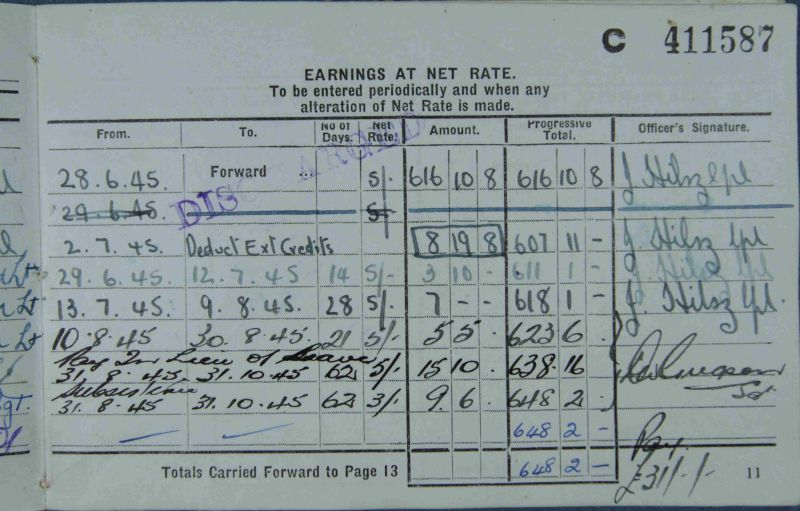 C 411587
EARNINGS AT NET RATE.
To be entered periodically and when any
alteration of Net Rate is made.
From. To. No of Days. Net Rate. Amount. Progressive Total. Officer's Signature.
DISCHARGED
28.6.45. Forward .. 5/- 616 10 8 616 10 8 J. Hilsz Cpl
29.6.45. 5/-
2.7.45. Deduct Ext Credits 8 19 8 607 11 - J. Hilsz Cpl
29.6.45 12.7.45 14 5/- 3 10 - 611 1 - J. Hilsz Cpl
13.7.45. 9.8.45. 28 5/. 7 - - 618 1 - J. Hilsz Cpl.
10.8.45 30.8.45. 21 5/- 5 5 . 623 6 .
Pay In Lieu of Leave
31.8.45. 31.10.45 62 5/- 15 10 . 638.16
Subsistence
31.8.45 31.10.45 62 3/- 9 6 . 648 2 . Sgt
648 2 -
Totals Carried Forward to Page 13 648 2 -
Pay.
£31/-/-
11